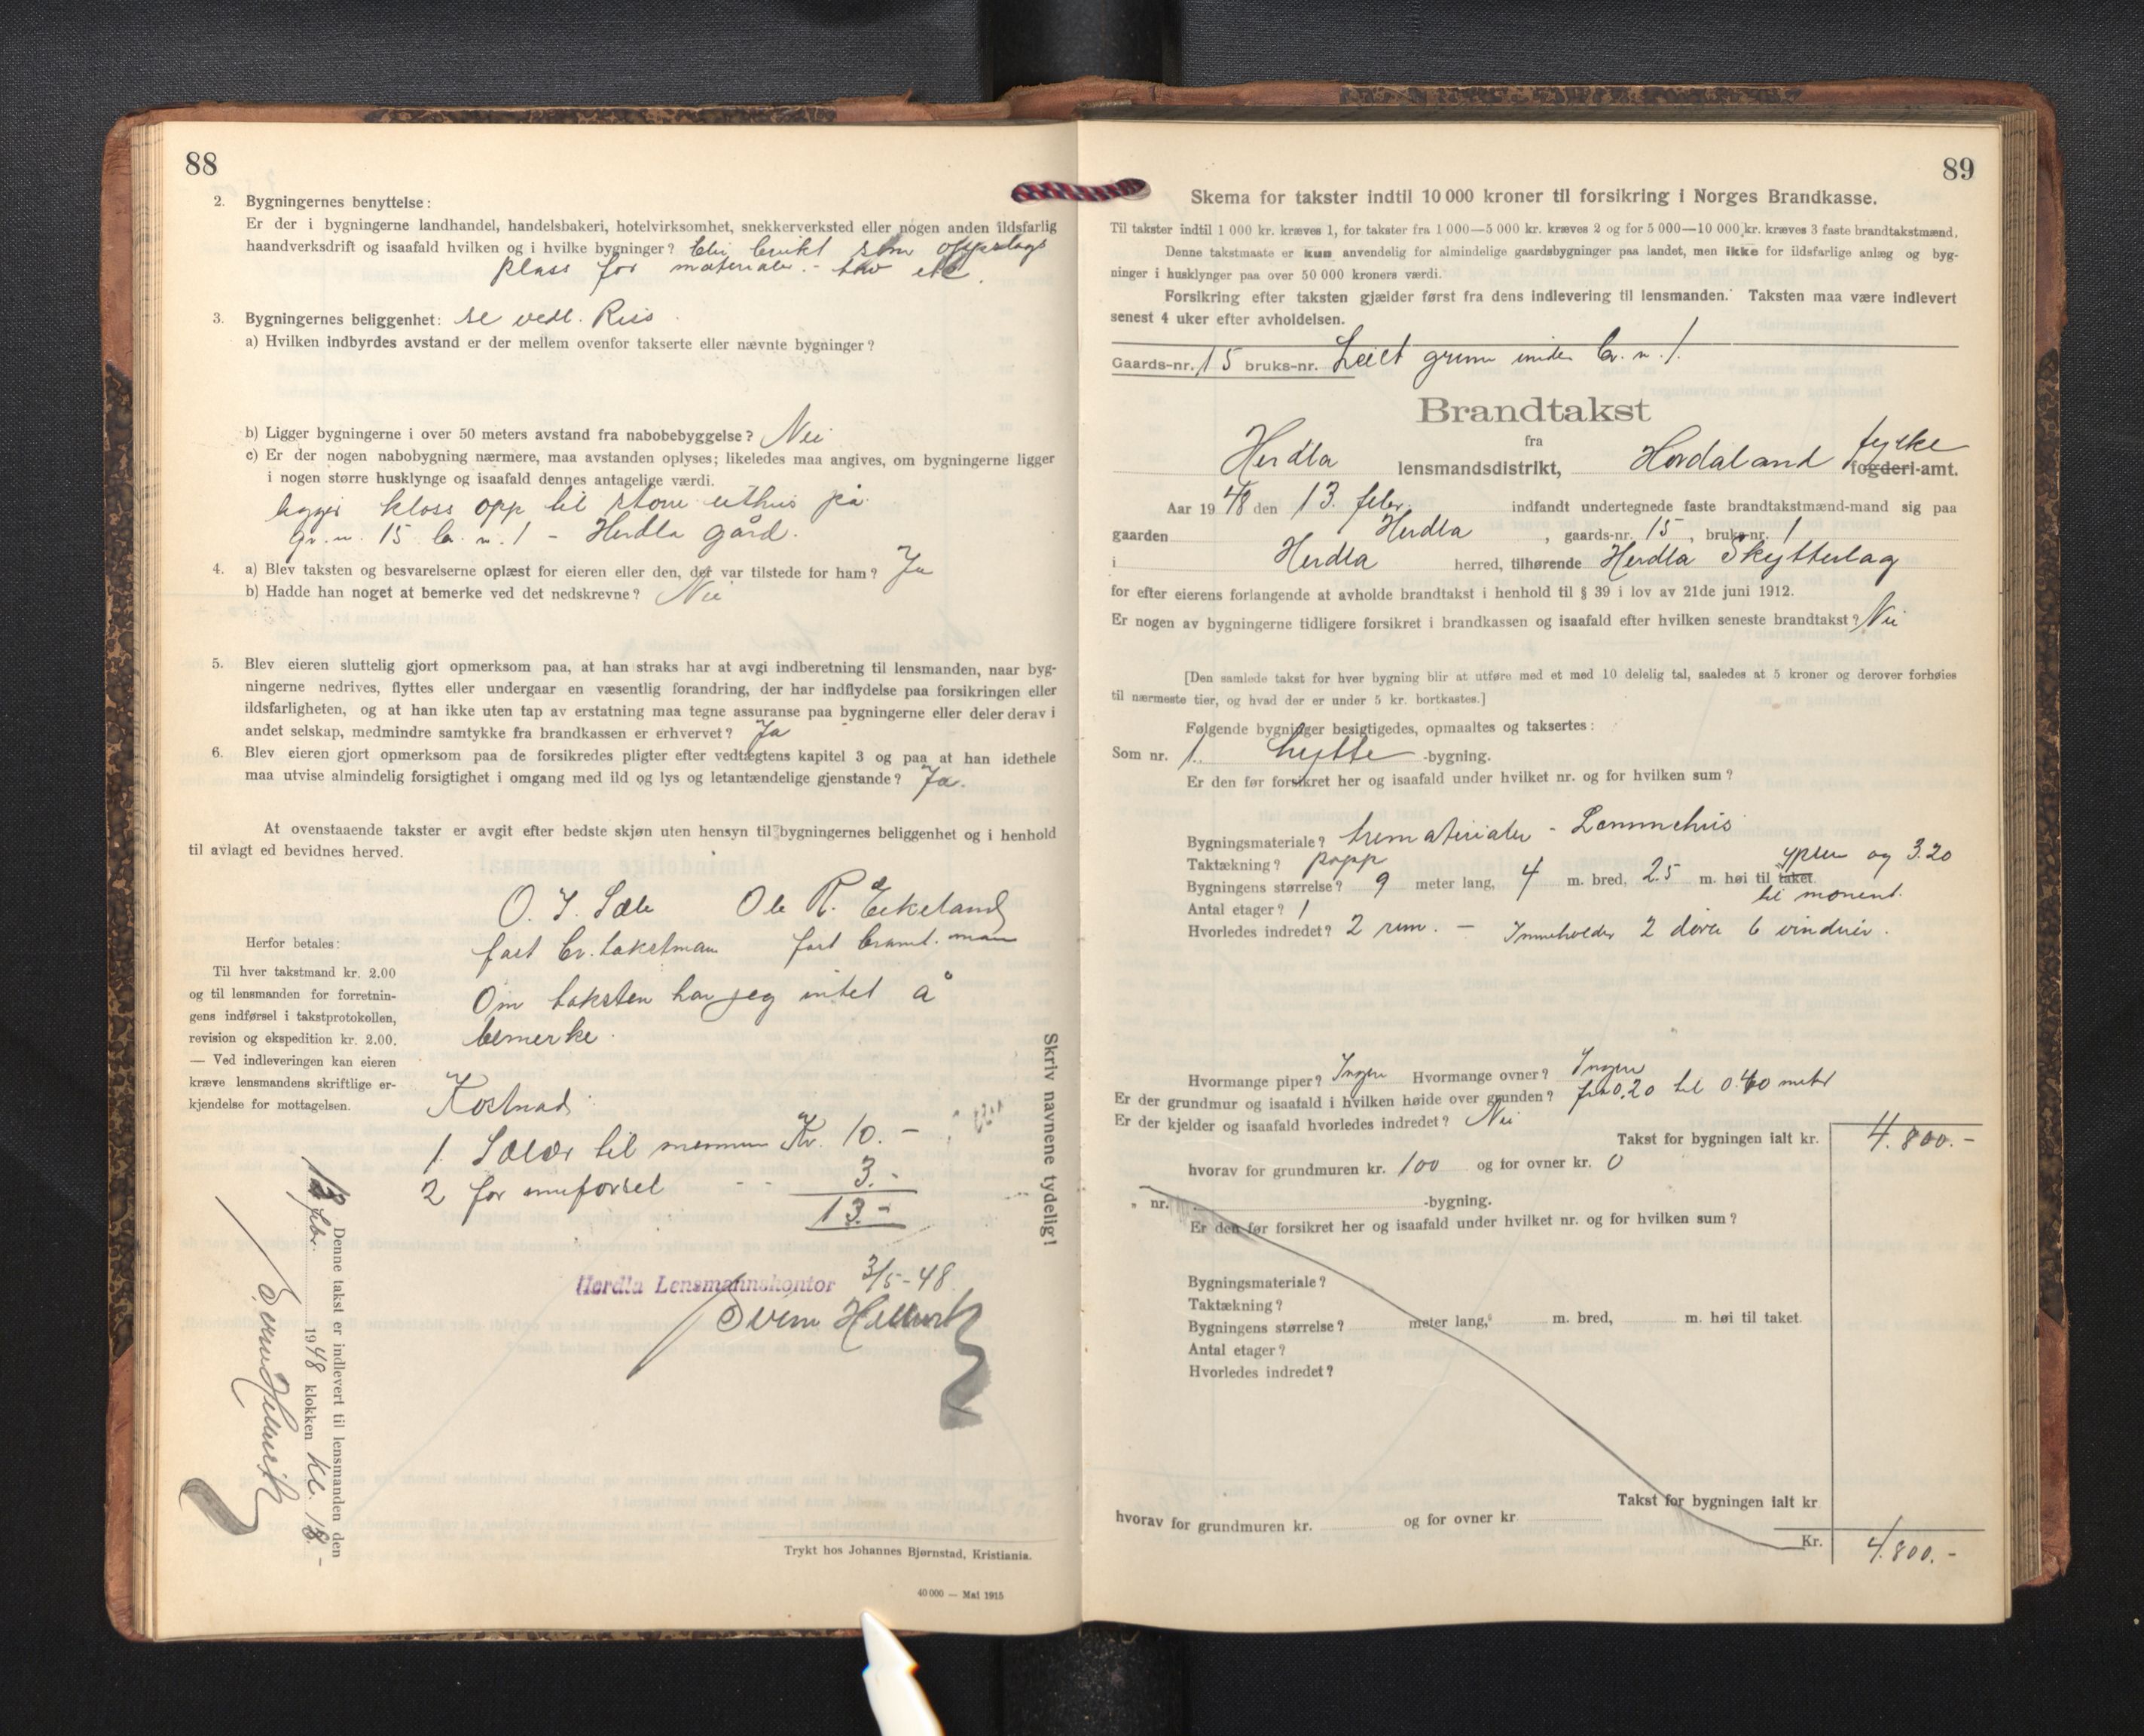 88
2. Bygningernes benyttelse:
Er der i bygningerne landhandel, handelsbakeri, hotelvirksomhet, snekkerverksted eller nogen anden ildsfarlig
haandverksdrift og isaafald hvilken og i hvilke bygninger? blir brukt som opplags
plass for materialer. - tau etc.
3. Bygningernes beliggenhet: se vedl. Riss.
a) Hvilken indbyrdes avstand er der mellem ovenfor takserte eller nævnte bygninger?
b) Ligger bygningerne i over 50 meters avstand fra nabobebyggelse? Nei
c) Er der nogen nabobygning nærmere, maa avstanden oplyses; likeledes maa angives, om bygningerne ligger
i nogen større husklynge og isaafald dennes antagelige værdi.
ligger kloss opp til store uthus på
gr. n. 15 br. n. 1 - Herdla gård.
4. a) Blev taksten og besvarelserne oplæst for eieren eller den, der var tilstede for ham? Ja
b) Hadde han noget at bemerke ved det nedskrevne? Nei
5. Blev eieren sluttelig gjort opmerksom paa, at han straks har at avgi indberetning til lensmanden, naar byg-
ningerne nedrives, flyttes eller undergaar en væsentlig forandring, der har indflydelse paa forsikringen eller
ildsfarligheten, og at han ikke uten tap av erstatning maa tegne assuranse paa bygningerne eller deler derav i
andet selskap, medmindre samtykke fra brandkassen er erhvervet? Ja
6. Blev eieren gjort opmerksom paa de forsikredes pligter efter vedtægtens kapitel 3 og paa at han idethele
maa utvise almindelig forsigtighet i omgang med ild og lys og letantændelige gjenstande? Ja.
At ovenstaaende takster er avgit efter bedste skjøn uten hensyn til bygningernes beliggenhet og i henhold
til avlagt ed bevidnes herved.
O. J. Sæle Ole R. Eikeland
fast br. takstman fast brannt. man
Om taksten har jeg intet å
bemerke.
Herfor betales:
Til hver takstmand kr. 2.00
og til lensmanden for forretnin-
gens indførsel i takstprotokollen,
revision og ekspedition kr. 2.00.
— Ved indleveringen kan eieren
kræve lensmandens skriftlige er-
kjendelse for mottagelsen.
Kostnad:
1. Salær til mennene Kr. 10. -
2 for innførsel - - 3. -
13. -
Skriv navnene tydelig!
Herdla Lensmannskontor 3/5-48
Denne takst er indlevert til lensmanden den
13 febr. 1948 klokken kl. 18. -
Trykt hos Johannes Bjørnstad, Kristiania.
40 000 — Mai 1915
89
Skema for takster indtil 10 000 kroner til forsikring i Norges Brandkasse.
Til takster indtil 1 000 kr. kræves 1, for takster fra 1 000—5 000 kr. kræves 2 og for 5 000—10 000 kr. kræves 3 faste brandtakstmænd.
Denne takstmaate er kun anvendelig for almindelige gaardsbygninger paa landet, men ikke for ildsfarlige anlæg og byg-
ninger i husklynger paa over 50 000 kroners værdi.
Forsikring efter taksten gjælder først fra dens indlevering til lensmanden. Taksten maa være indlevert
senest 4 uker efter avholdelsen.
Gaards-nr. 15 bruks-nr. Leiet grunn under br. n. 1.
Brandtakst
fra
Herdla lensmandsdistrikt, Hordaland fylke fogderi-amt.
Aar 1948 den 13. febr. indfandt undertegnede faste brandtakstmænd-mand sig paa
gaarden Herdla, gaards-nr. 15, bruks-nr. 1
i Herdla herred, tilhørende Herdla Skytterlag
for efter eierens forlangende at avholde brandtakst i henhold til § 39 i lov av 21de juni 1912.
Er nogen av bygningerne tidligere forsikret i brandkassen og isaafald efter hvilken seneste brandtakst? Nei
[Den samlede takst for hver bygning blir at utføre med et med 10 delelig tal, saaledes at 5 kroner og derover forhøies
til nærmeste tier, og hvad der er under 5 kr. bortkastes.]
Følgende bygninger besigtigedes, opmaaltes og taksertes:
Som nr. 1. hytte -bygning.
Er den før forsikret her og isaafald under hvilket nr. og for hvilken sum?
Bygningsmateriale? trematerialer - Lemmehus
Taktækning? papp
Bygningens størrelse? 9 meter lang, 4 m. bred, 2.5 m. høi til taket og 3.20
til mønent.
Antal etager? 1
Hvorledes indredet? 2 rum. - Inneholder 2 dører 6 vinduer.
Hvormange piper? Ingen Hvormange ovner? Ingen
Er der grundmur og isaafald i hvilken høide over grunden? fra 0,20 til 0.40 meter
Er der kjelder og isaafald hvorledes indredet? Nei
Takst for bygningen ialt kr. 4.800.-
hvorav for grundmuren kr. 100 og for ovner kr. 0
„ nr. -bygning.
Er den før forsikret her og isaafald under hvilket nr. og for hvilken sum?
Bygningsmateriale?
Taktækning?
Bygningens størrelse? meter lang, m. bred, m. høi til taket.
Antal etager?
Hvorledes indredet?
Takst for bygningen ialt kr
hvorav for grundmuren kr. og for ovner kr
Kr. 4.800.-